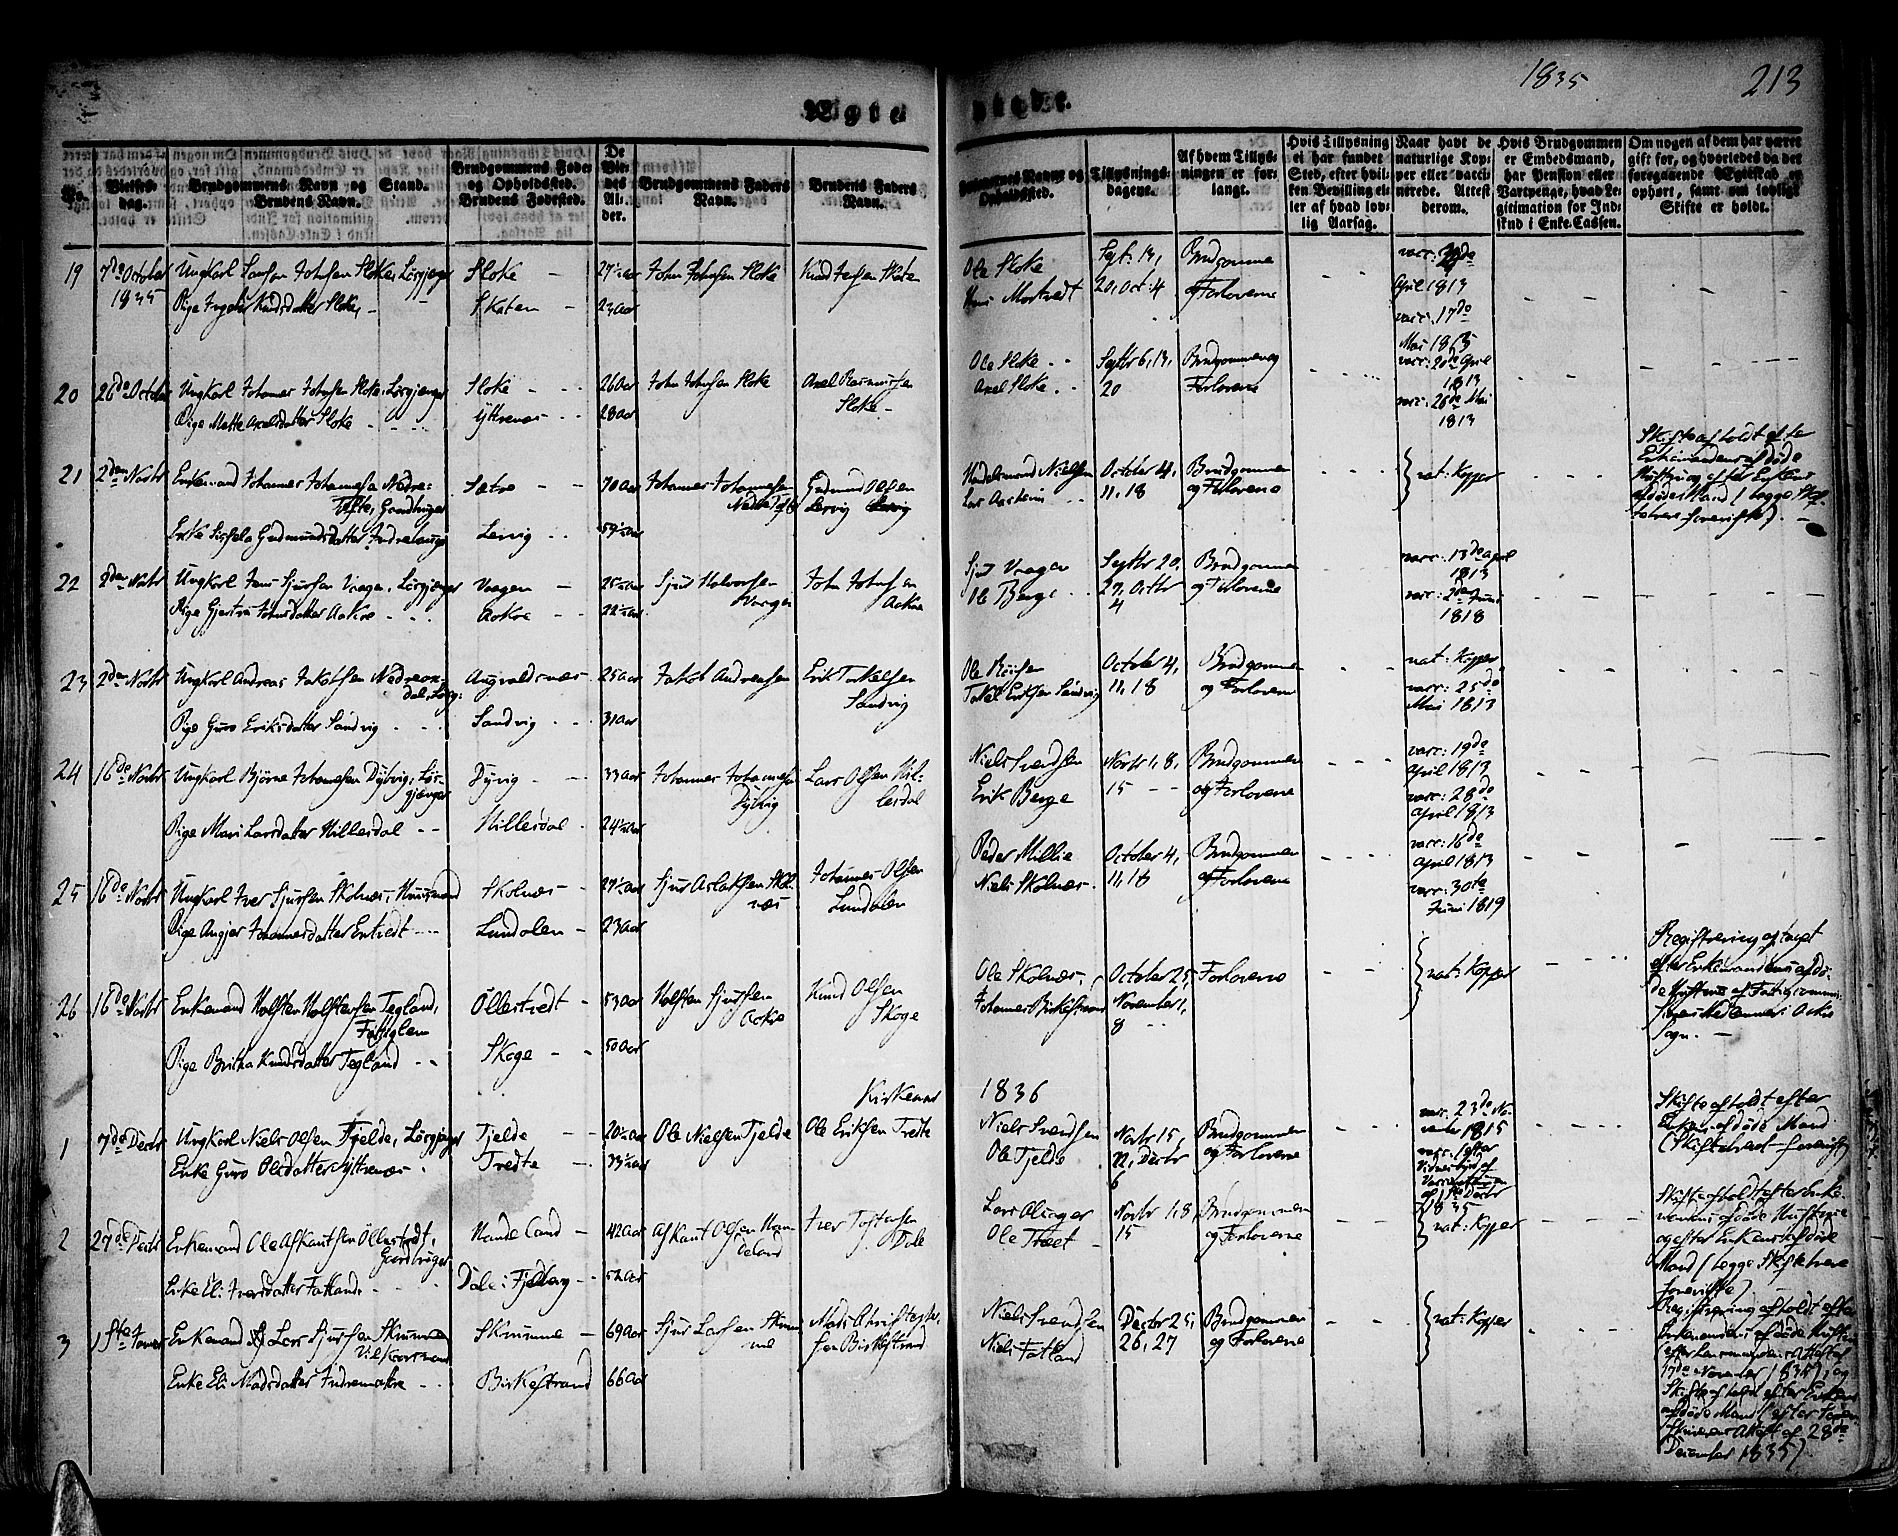 1835
213
Ægte
viede.
No.
Vielses-
dag.
Brudgommens Navn og
Brudens Navn.
Stand.
Brudgommens Føde
og Opholdssted.
Brudens Fødested.
De
Vie-
des
Al-
der.
Brudgommens Faders
Navn.
Brudens Faders
Navn.
Forlovernes Navne og
Opholdssted.
Tillysnings-
dagene.
Af hvem Tillys-
ningen er for-
langt.
Hvis Tillysning
ei har fundet
Sted, efter hvil-
ken Bevilling el-
ler af hvad lov-
lig Aarsag.
Naar havt de
naturlige Kop-
per eller vacci-
nerede. Attest
derom.
Hvis Brudgommen
er Embedsmand,
har Pension eller
Vartpenge, hvad Le-
gitimation for Ind-
skud i Enke-Cassen.
Om nogen af dem har været
gift før, og hvorledes da det
foregaaende Ægteskab er
ophørt, samt om lovligt
Skifte er holdt.
19
7de October
1835
Ungkarl Johnsen Sloke, Lösgjenger
Pige Knudsdatter Sloke,
Sloke
Skaten
27½ aar
23 aar
John Johnsen Sloke
Knud Jensen Skate
Ole Sloke
Septr: 13,
20, Oct: 4
Brudgomme
og Forloverne
April 1813
vacc: 17do
Mai 1815
20
26de October
Ungkarl Johannes Johnsen Sloke, Lösgjenger
Pige Mette Axelsdatter Sloke
Sloke
Yttrenæs
26 aar
28 aar
John Johnsen Sloke
Axel Rasmussen
Sloke
Ole Sloke
Axel Sloke
Septbr 6, 13,
20
Brudgommen og
Forloverne
vacc: 20de April
1813
vacc: 26de Mai
1813
21
2den Novbr
Enkemand Johannes Johannesen Nedre-
Tofte, Gaardbruger
Enke Gudmundsdatter Indrehauge
Sætre
Lervig
70 aar
59½ aar
Johannes Johannesen
Nedre Tofte
Gudmund Olsen
Lervig
Handelsmand Nielsen
October 4,
11, 18
Brudgommen
og Forloverne
nat: Kopper
Skifte afholdt efter
Enkemandens afdøde
Hustru og efter Enkens
afdøde Mand (begge Skif-
tebreve foreviste).
22
2den Novbr
Ungkarl Jens Sjursen Vaage, Lösgjenger
Pige Gjertru Johnsdatter Aakre
Vaagen
Aakre
25½ aar
22½ aar
Sjur Halvorsen
Vaagen
John Johnsen
Aakre
Sjur Vaage
Ole Berge
Septbr 20,
27, Octbr
4
Brudgommen
og Forloverne
vacc: 13de April
1813
vacc: 2den Juni
1818
23
2den Novbr
Ungkarl Andreas Jakobsen Nedreaa-
dal, Lösg:
Pige Guro Eriksdatter Sandvig
Augvaldsnæs
Sandvig
25 aar
31 aar
Jakob Andreasen
Erik Torkelsen
Sandvig
Torkel Eriksen Sandvig
October 4,
11, 18
Brudgommen
og Forloverne
nat: Kopper
vacc: 25de
Mai 1813
24
16de Novbr
Ungkarl Björne Johannesen Dybvig, Lös-
gjenger
Pige Mari Larsdatter Hillesdal
Dyvig
Hillesdal
33 aar
24½ aar
Johannes Johannesen
Dybvig
Lars Olsen Hil-
lesdal
Niels Svendsen
Erik Berge
Novbr 1, 8,
15
Brudgommen
og Forloverne
vacc: 19de
April 1813
vacc: 28de
April 1813
25
16de Novbr
Ungkarl Iver Sjursen Skolnæs, Huusmand
Pige Angjer Johannesdatter Entvedt
Skolnæs
Lundalen
27½ aar
23 aar
Sjur Aslaksen Skol-
næs
Johannes Olsen
Lundalen
Peder Millie
Niels Skolnæs
October 4,
11, 18
Brudgommen
og Forloverne
vacc: 16de
April 1813
vacc: 30te
Juni 1819
26
16de Novbr
Enkemand Holsten Holstensen Tegland,
Fattiglem
Pige Britha Knudsdatter Tegland
Ölleshedt
Skoge
53 aar
50 aar
Holsten Sjursen
Aakre
Knud Olsen
Skoge
Ole Skolnæs
Johannes Birkestrand
October 25,
November 1,
8
Forloverne
nat: Kopper
Registrering optaget
efter Enkemandens afdø-
de Hustrue af Fattigcommis-
sions Medlemmer i Aakre
Sogn.
Kirkeaar
1836
1
7de Decbr
Ungkarl Niels Olsen Tjelde, Lösgjenger
Enke Guro Olsdatter Yttrenæs
Tjelde
Tvedte
20½ aar
33½ aar
Ole Nielsen Tjelde
Ole Eriksen Tvedte
Niels Svendsen
Ole Tjelde
Novbr 15,
22, Decbr
6
Brudgommen
og Forloverne
vacc: 23de No-
vember 1815
1835
Skifte afholdt efter
Enkens afdøde Mand
(Skiftebrevet forevist)
2
27de Decbr
Enkemand Ole Asknutsen Öllestedt,
Gaardbruger
Enke Eli Iversdatter Fatland
Hande Land
Dale i Fjelberg
42 aar
52 aar
Asknut Olsen Han-
deland
Iver Tostensen
Dale
Ole Træet
Novbr 1, 8,
15
Brudgommen
og Forloverne
nat: Kopper
Skifte afholdt efter Enke-
mandens afdøde Hustrue
og efter Enkens afdøde
Mand (begge Skiftebreve
foreviste)
3
1ste Januar
Enkemand Lars Sjursen Skrumme
Enke Eli Madsdatter Indrematre
Skrumme
Birkestrand
69 aar
66 aar
Sjur Larsen Skrum-
me
Mads Christophe-
sen Birkestrand
Niels Svendsen
Niels Fatland
Decbr 25,
26, 27
Brudgommen
og Forloverne
nat: Kopper
Registrering afholdt efter
Enkemandens afdøde Hustrue
efter Lensmandens Attest af
17de November 1835, og
Skifte afholdt efter Enkens
afdøde Mand (efter Soren-
skriverens Attest af 28de
December 1835)